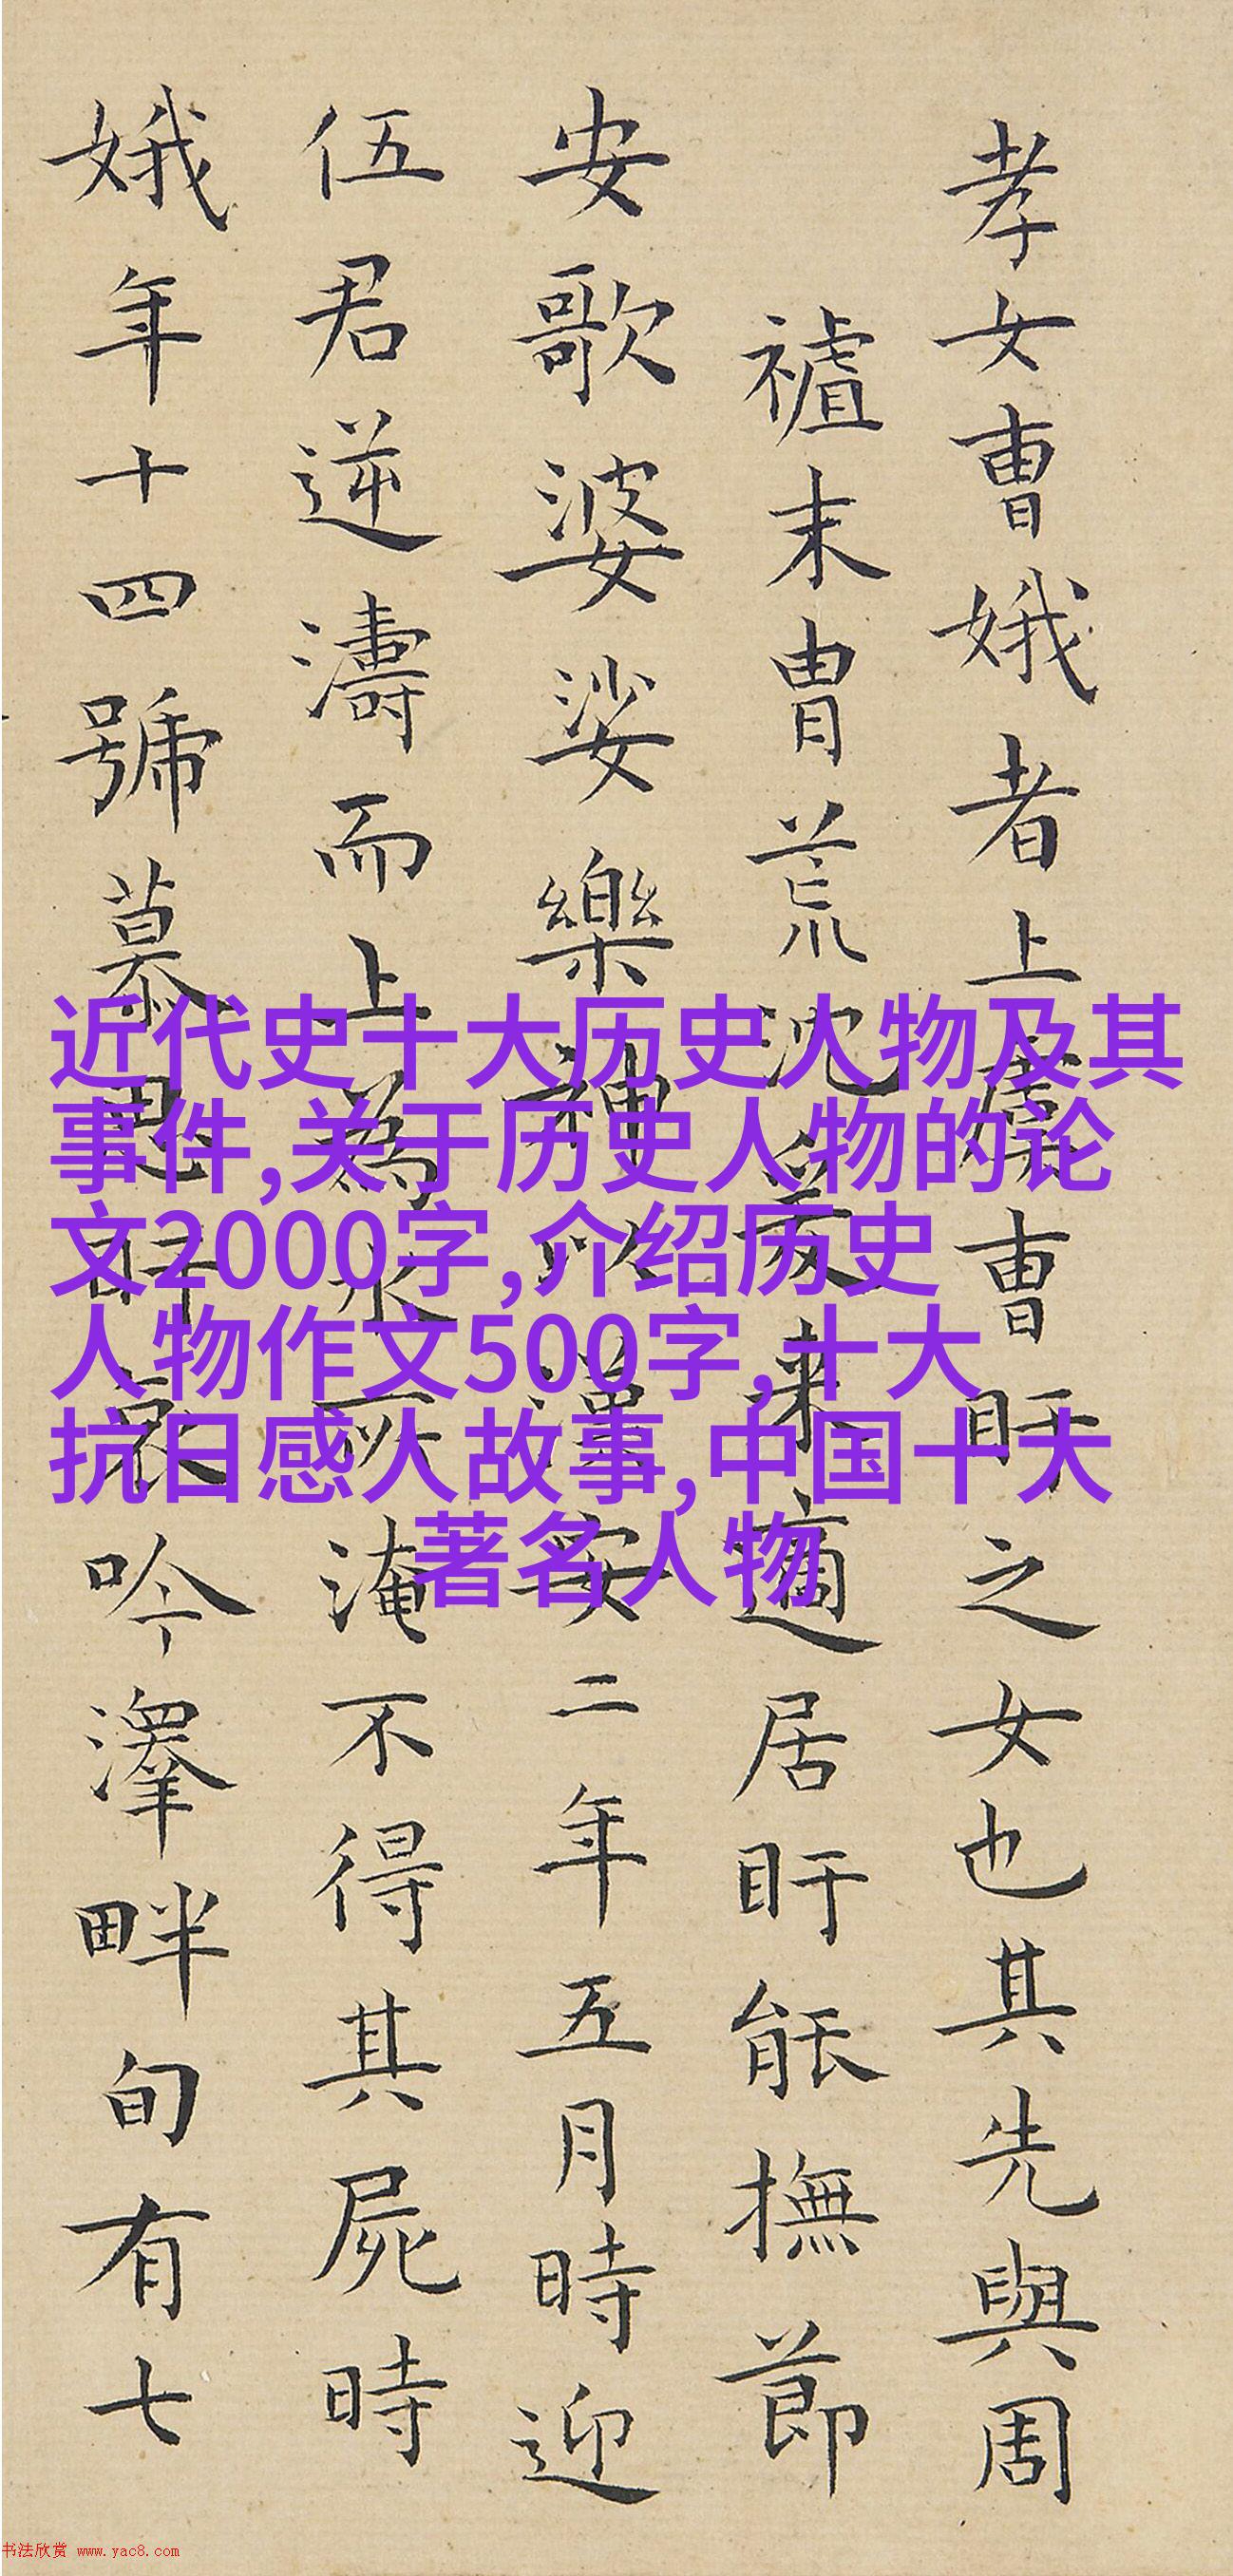 孝女曹娥者上虞曹盱之女也其先與周
末胄荒沈爰来適居盱能撫節
安歌婆娑樂神以漢安二年五月時迎
伍君逆濤而上為水所淹不得其屍時
娥年十四號慕思盱哀吟澤畔旬有七
近代史十大历史人物及其
事件,关于历史人物的论
文2000字,介绍历史
人物作文500字,十大
抗日感人故事,中国十大
著名人物
书法欣赏 www.yac8.com